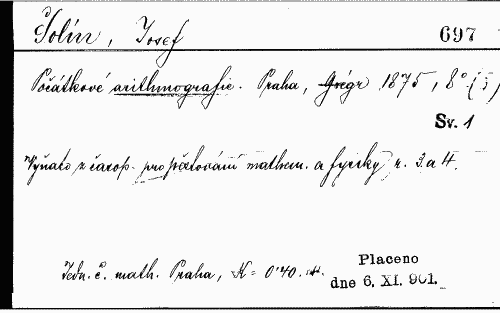 Šolín, Josef 697
Počátkové arithmografie. Praha, Grégr 1875, 8°. (
Sv. 1
Vyňato z časop. pro pěstování mathem. a fysiky, r. 3. a 4.
Jedn. č. math. Praha, K = 0'40.
Placeno
dne 6. XI. 901.